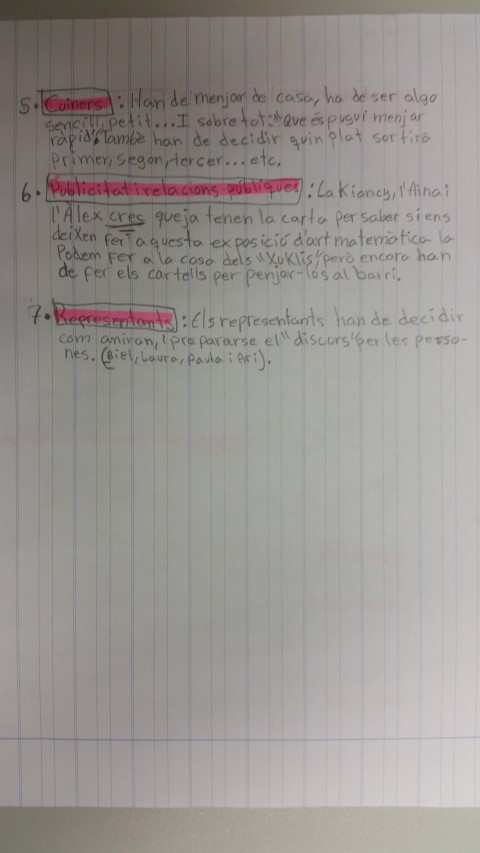 5. Cuiners: Han de menjar de casa, ha de ser algo
sencill, petit... I sobretot: "que es pugui menjar
ràpid". També han de decidir quin plat sortirà
primer, segon, tercer... etc.
6. Publicitat i relacions públiques: La Kiancy, l'Aina i
l'Àlex crec que ja tenen la carta per saber si ens
deixen fer aquesta exposició d'art matemàtica la
Podem fer a la casa dels "Xuklis", però encara han
de fer els cartells per penjar-los al barri.
7. Representants: Els representants han de decidir
com aniran, i prepararse el "discurs" per les perso-
nes. (Biel, Laura, Paula i Ari).